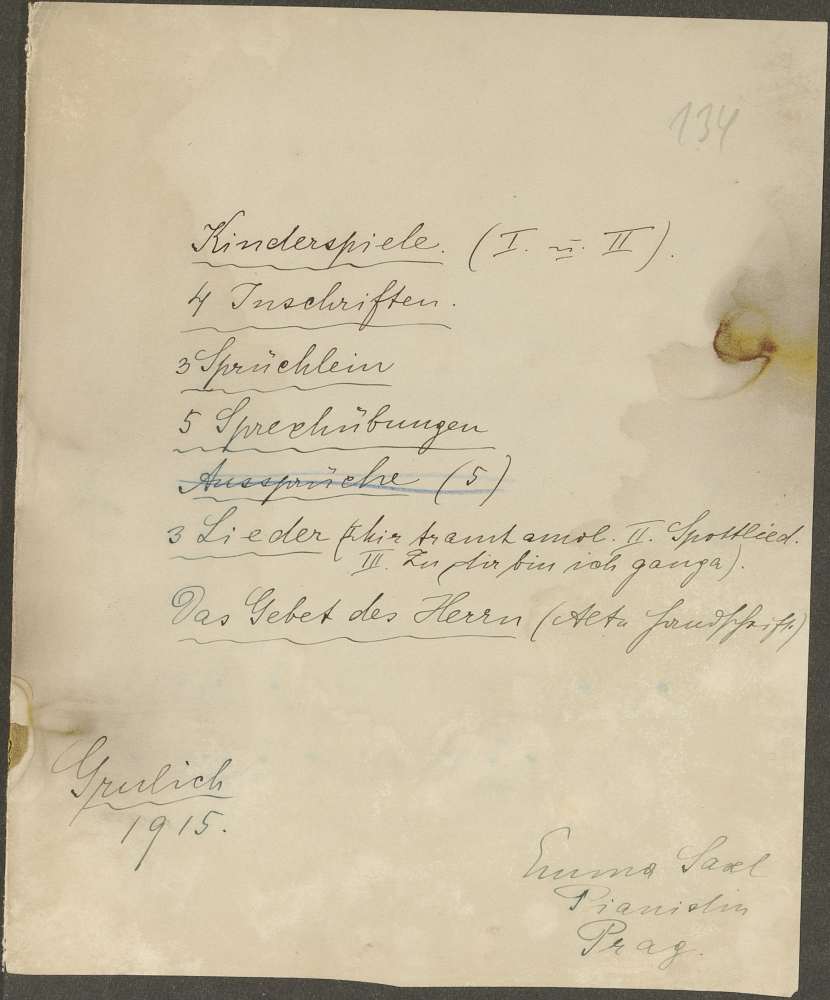 134
Kinderspiele. (I. u. II).
4 Inschriften.
3 Sprüchlein
5 Sprechübungen
Aussprüche (5)
3 Lieder (I. hir tramt amol. II. Spottlied.
III. Zu dir bin ich ganga).
Das Gebet des Herrn (Alte Handschrift)
Grulich
1915.
Emma Saxl
Pianistin
Prag.